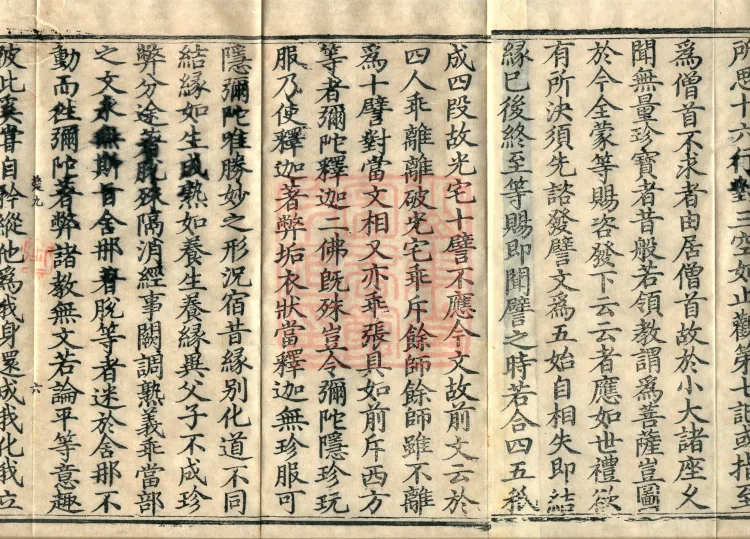 所思十六行三空如止觀第七記或指至
爲僧首不求者由居僧首故於小大諸座久
聞無量珍寶者昔般若領教謂爲菩薩豈圖
於今全蒙等賜咨發下云云者應如世禮欲
有所決須先諮發譬文爲五始自相失即結
縁巳後終至等賜即聞譬之時若合四五秖
成四段故光宅十譬不應今文故前文云於
四人乖離離破光宅乖斥餘師餘師雖不離
爲十譬對當文相又亦乖張具如前斥西方
等者彌陀釋迦二佛旣殊豈令彌陀隱珍玩
服乃使釋迦著弊垢衣狀當釋迦無珍服可
隱彌陀唯勝妙之形況宿昔縁別化道不同
結縁如生成熟如養生養縁異父子不成珍
弊分途著脫殊隔消經事闕調熟義乖當部
之文永無斯旨舍那著脫等者迷於舍那不
動而往彌陀著弊諸教無文若論平等意趣
九 六
彼此奚嘗自矜縱他爲我身還成我化我立